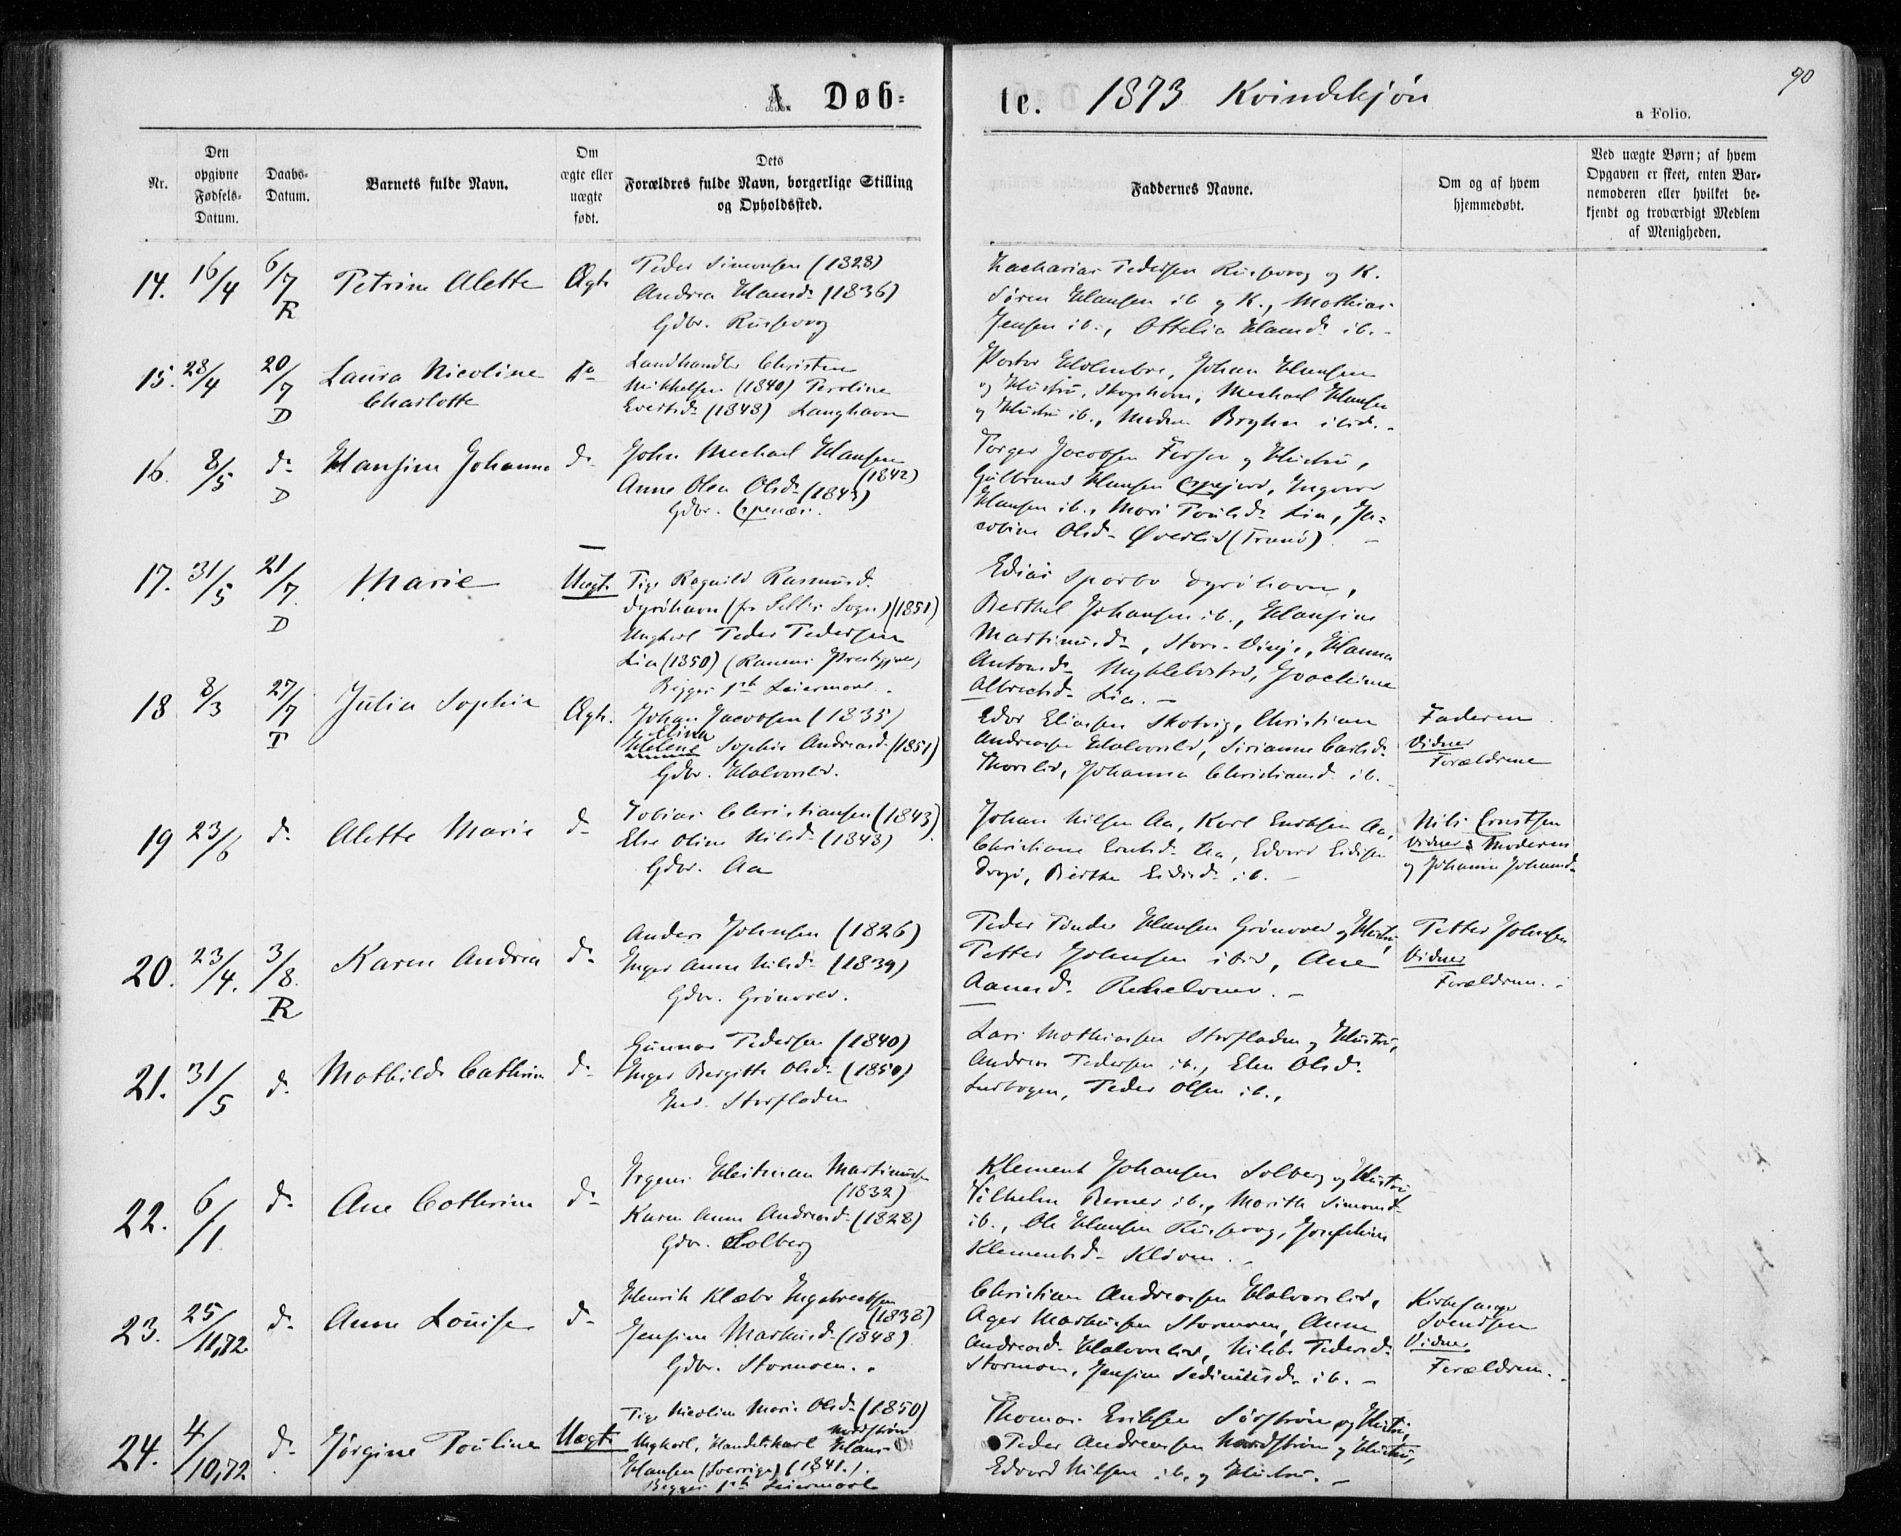 90
A. Døb-
te. 1873 Kvindekjøn
a Folio.
Nr.
Den opgivne Fødsels-Datum.
Daabs-Datum.
Barnets fulde Navn.
Om ægte eller uægte født.
Dets Forældres fulde Navn, borgerlige Stilling og Opholdssted.
Faddernes Navne.
Om og af hvem hjemmedøbt.
Ved uægte Børn; af hvem Opgaven er skeet, enten Barnemoderen eller hvilket bekjendt og troværdigt Medlem af Menigheden.
14. 16/4 6/7 R Petrine Alette Ægte
Peder Simonsen (1828)
Andrea Hansd. (1836)
Gdbr. Russevog
Zacharias Pedersen Russevog og K.
Søren Hansen ib. og K., Mathias
Jensen ib., Ottelia Hansd. ib. -
15. 28/4 20/7 D Laura Nicoline
Charlotte
Landhandler Christen
Mikkelsen (1840) Peroline
Evertsd. (1848) Langhavn
Pastor Holmboe, Johan Hansen
og Hustru, Skoghavn, Mechael Hansen
og Hustru ib., Madam Bryhn ibid. -
16. 8/5 d. D Hansine Johanne d.
John Mechael Hansen
(1842)
Anne Olea Olsd. (1845)
Gdbr.
Torger Jacobsen og Hustru,
Gulbrand Hansen
Hansen ib., Mari Paulsd. Lia, Ja-
cobine Olsd. Øverlid (Tranø) -
17. 31/5 21/7 D Marie Uægte
Pige Ragnild Rasmusd.
Dyrøhavn (fr. Sogn) (1851)
Ungkarl Peder Pedersen
Lia (1850) (Ranens Præstegjeld)
Begges 1ste Leiermaal.
Edias Sparbo Dyrøhavn,
Berthel Johansen ib., Hansine
Martinusd., Store-Vinje, Hanna
Antonsd. Myklebostad, Joachime
Albrectsd. Lia. -
18 8/3 27/7 T Julia Sophie Ægte.
Johan Jacobsen (1835)
Elina
Helene Sophie Andreasd. (1851)
Gdbr. Halvorslid.
Edvr Eliasen Skotvig, Christian
Andreasen Halvorslid, Sirianne Carlsd.
Thorslid, Johanna Christiansd. ib. -
Faderen
Vidner
Forældrene
19 23/6 d. Alette Marie d.
Tobias Christiansen (1843)
Else Oline Nilsd. (1843)
Gdbr. Aa
Johan Nilsen Aa, Karl Eriksen Aa,
Christiane Erntsd. Aa, Edvard Eidisen
Drøjø, Berthe Eidisd. ib. -
Nils Ernstsen
Vidner: Moderen
og Johanna Johansd.
20. 23/4. 3/8. R Karen Andrea d.
Anders Johnsen (1826)
Inger Anne Nilsd. (1839)
Gdbr. Grønvold.
Peder Tønder Hansen Grønvold og Hustru,
Petter Johnsen ibid, Ane
Aanesd. -
Petter Johnsen
Vidner
Forældrene.
21. 31/5 d. Mathilde Cathrine d.
Gunnar Pedersen (1840)
Inger Bergitte Olsd. (1850)
Ind. Storfladen
Lars Mathiassen Storfladen og Hustru,
Andreas Pedersen ib., Elen Olsd.
Indbogen, Peder Olsen ib.,
22. 6/1 d. Ane Cathrine d.
Irgens Heitman Martinussen
(1832)
Karen Anne Andreasd. (1828)
Gdbr. Solberg
Klement Johansen Solberg og Hustru
Vilhelm Berner ib., Marith Simonsd.
ib., Ole Hansen Russevog, Josephine
Klementsd. Kløven. -
23. 25/11,72 d. Anne Louise d.
Henrik Klæbo Ingebregtsen
(1838)
Jensine Markusd. (1848)
Gdbr. Stormoen.
Christian Andreasen Halvorslid,
Ager Markussen Stormoen, Anne
Andreasd. Halvorslid, Pedersd.
Stormoen, Jensine ib. -
Kirkesanger
Svendsen
Vidner
Forældrene.
24. 4/10,72 d. Jørgine Pauline Uægte
Pige Nicoline Marie Olsd. (1850)
Nordstrøm
Ungkarl, Handelskarl Hans
Hansen (Sverrige) (1841.).
Begges 1ste Leiermaal
Thomas Eriksen Sørstrøm og Hustru,
Peder Andreassen Nordstrøm og Hustru,
Edvard Nilsen ib. og Hustru. -